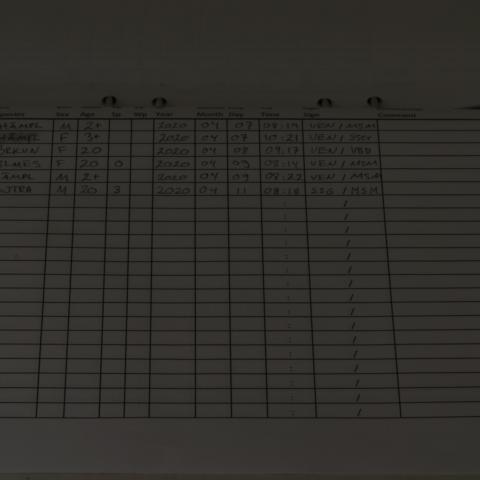 Species Sex Age Sp Wp Year Month Day Time Sign Comment
HÄMPL M 2+ 2020 04 07 08:19 VEN / MSM
HÄMPL F 3+ 2020 04 07 10:21 VEN / SSG
ÖRKUN F 20 2020 04 08 09:17 VEN / VBD
ELMES F 20 0 2020 04 09 08:14 VEN / MSM
ÄMPL M 2+ 2020 04 09 08:22 VEN / MSM
JTRA M 20 3 2020 04 11 08:18 SSG / MSM